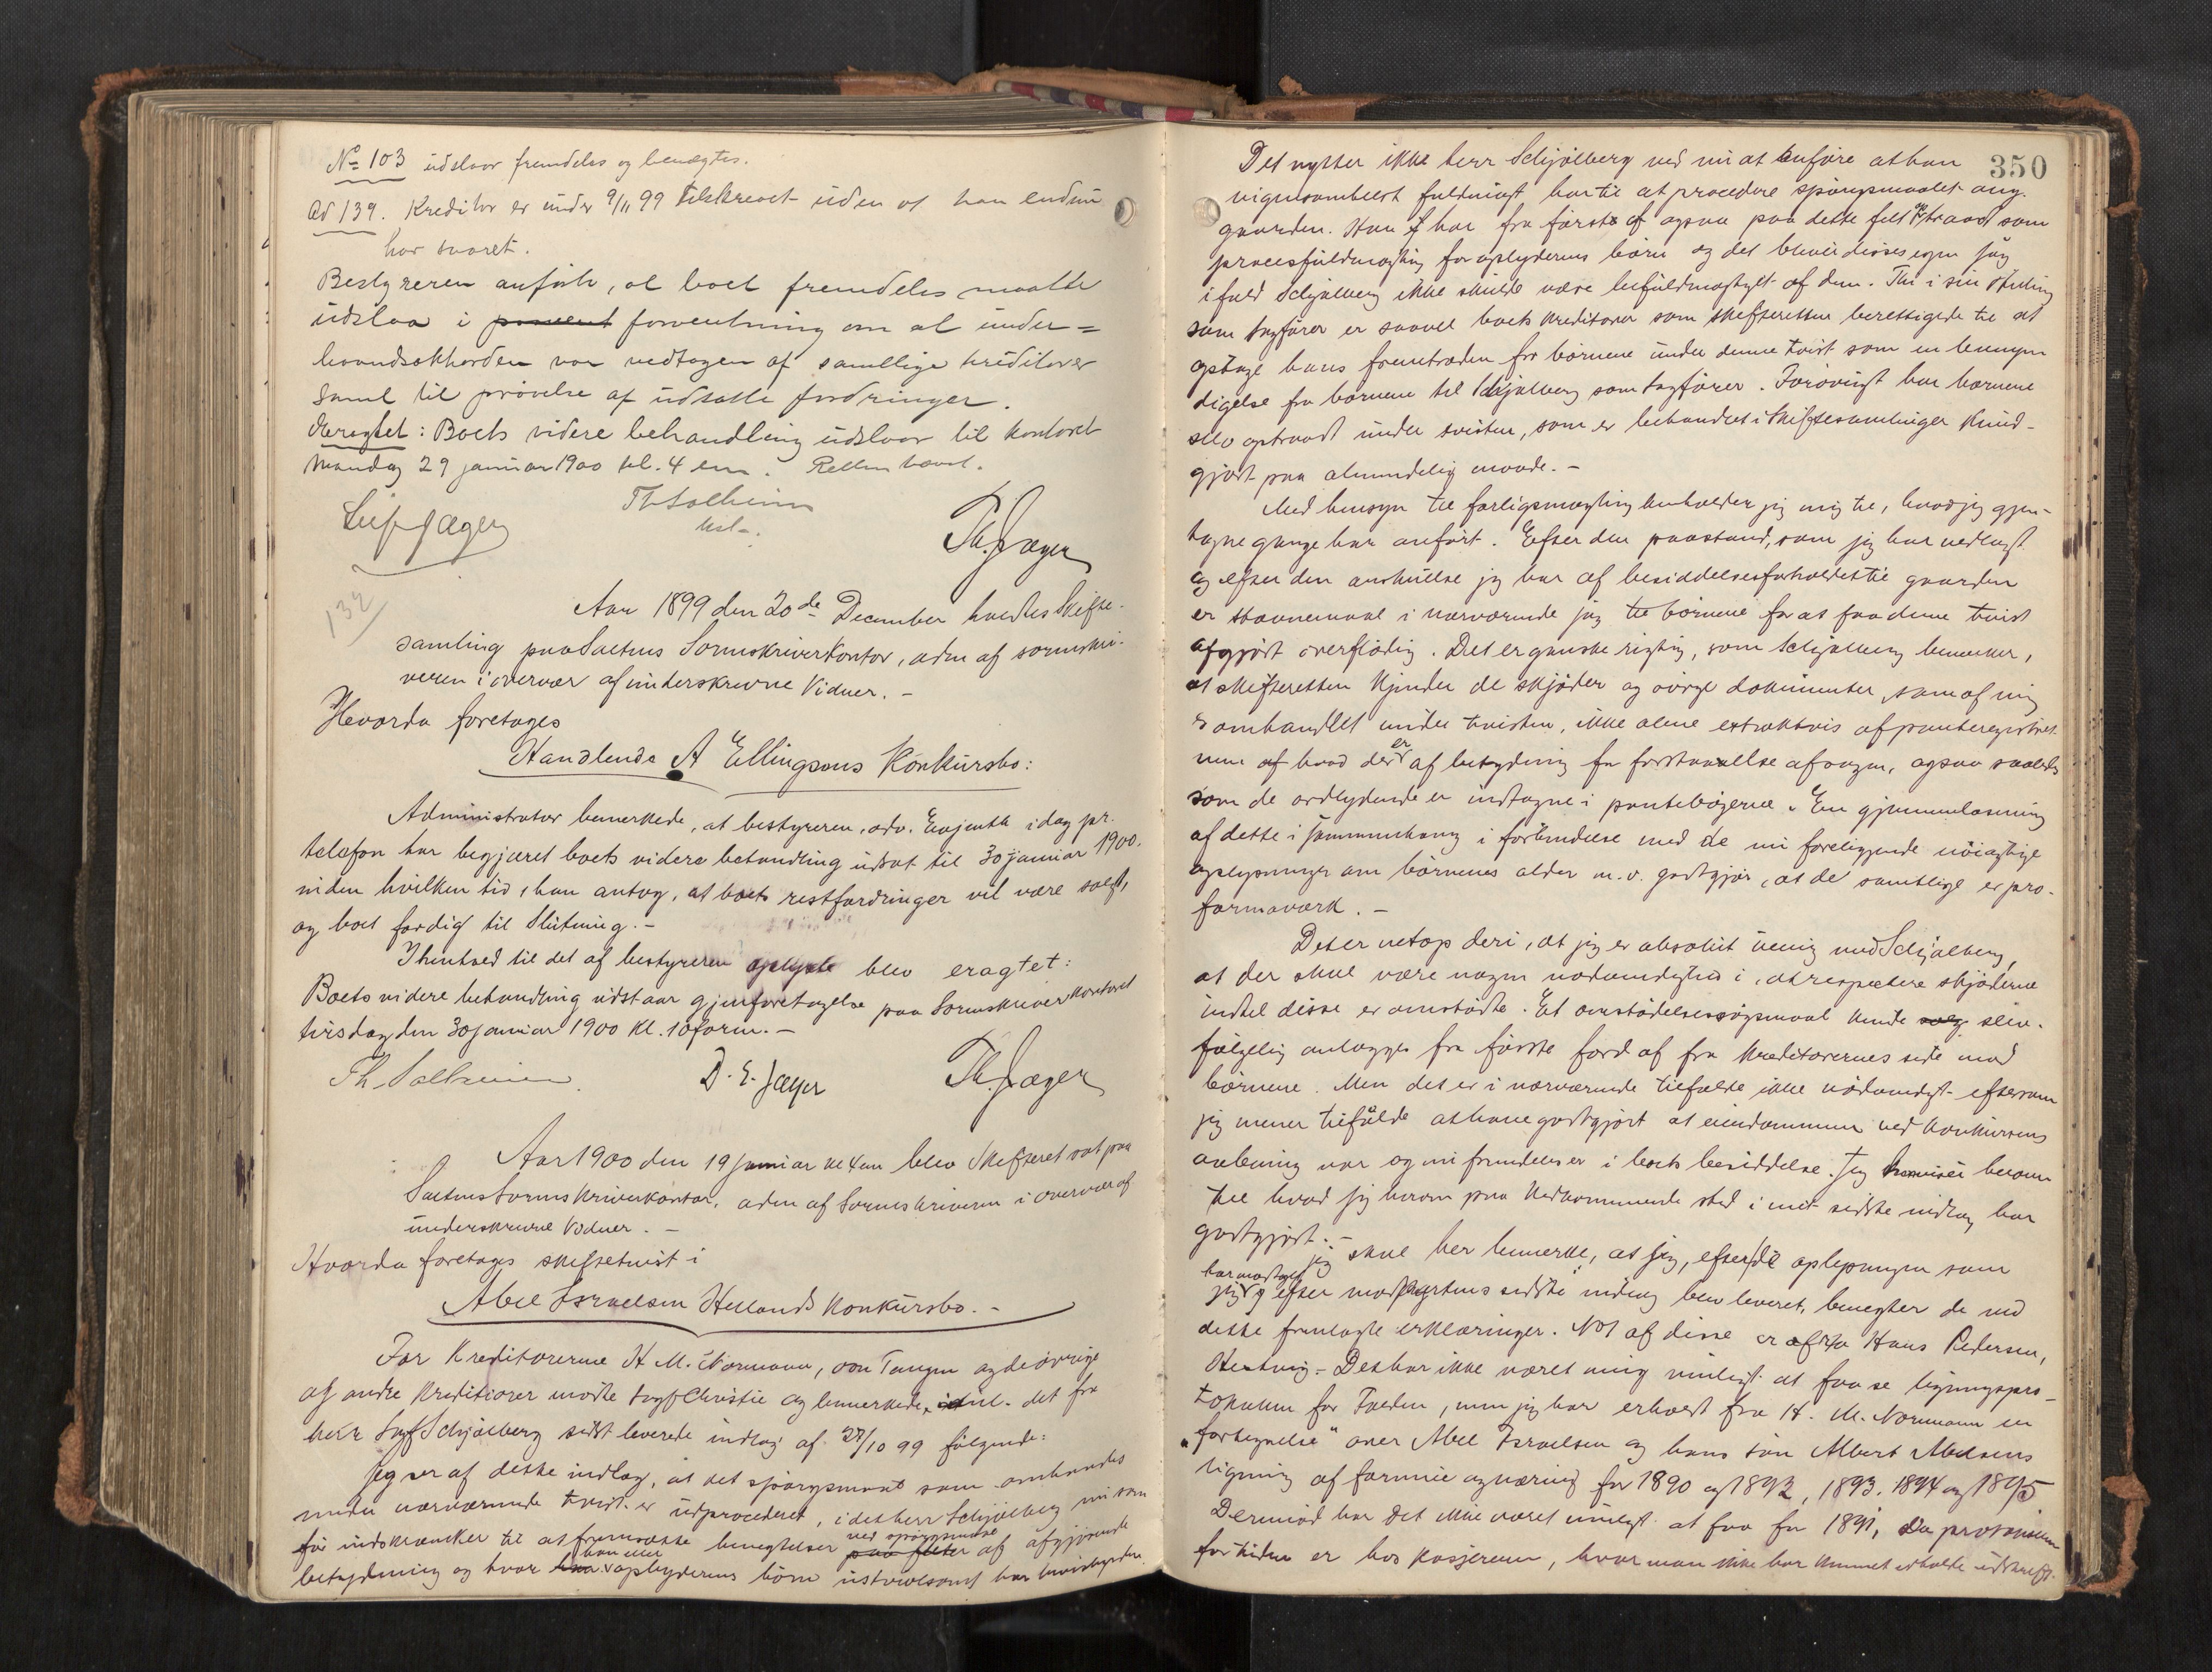 No 103 udstaar fremdeles og benægtes.
Ad 139. Kreditor er under 9/11 99 tilskrevet uden at han endnu
har svaret.
Bestyreren anførte, at boet fremdeles maatte
udstaa i forventning om at under=
haandsakkorden var vedtagen af samtlige kreditorer
samt til prøvelse af udsatte fordringer.
Eragtet: Boets videre behandling udstaar til kontoret
mandag 29 januar 1900 kl. 4 em. Retten hævet.
Leif Jæger Th Solheim Th. Jæger
kst.
132
Aar 1899 den 20de December holdtes Skifte-
samling paa Saltens Sorenskriverkontor, adm af sorenskri-
veren i overvær af underskrevne Vidner. -
Hvorda foretoges
Handlende A Ellingsens Konkursbo:
Administrator bemerkede, at bestyreren, adv. Evjenth idag pr.
telefon har begjæret boets videre behandling udsat til 30 januar 1900.
inden hvilken tid, han antog, at boets restfordringer vil være solgt,
og boet færdig til Slutning. -
I henhold til det af bestyreren oplyste blev eragtet:
Boets videre behandling udstaar gjenforetagelse paa Sorenskriverkontoret
tirsdag den 30 januar 1900 Kl. 10 form. -
Th. Solheim. D. E. Jæger Th. Jæger
Aar 1900 den 19 januar kl 4 em blev Skifteret sat paa
Saltens Sorenskriverkontor, adm af Sorenskriveren i overvær af
underskrevne Vidner. -
Hvorda foretoges skiftetvist i
Abel Israelsen Hellands Konkursbo. -
For Kreditorerne H. M. Normann, von Tangen og de øvrige
af andre Kreditorer mødte sagf Christie og bemerkede, det fra
herr sagf Schjølberg sidst leverede indlæg af 27/10 99 følgende:
Jeg ser af dette indlæg, at det spørgsmaal som omhandles
under nærværende tvist er udprocederet, idet herr Schjølberg nu som
før indskrænker til at fremsætte benegtelser ved spørgsmaale af afgjørende
betydning og hvor han eller opbyderens børn utvivlsomt har bevisbyrden.
350
Det nytter ikke herr Schjølberg ved nu at anføre at han
fuldmagt har til at procedere spørgsmaalet ang.
gaarden. Han har fra først af ogsaa paa dette felt optraadt som
procesfuldmægtig for opbyderens børn og det bliver disses egen sag
ifald Schjølberg ikke skulde være befuldmægtiget af dem. Thi i sin stilling
som sagfører er saavel boets kreditorer som skifteretten berettigede til at
optage hans fremtræden for børnene under denne tvist som en bemyn-
digelse fra børnene til Schjølberg som sagfører. Forøvrigt har børnene
selv optraadt under tvisten, som er behandlet i Skiftesamlinger kund-
gjort paa almindelig maade. -
Med hensyn til forligsmægling henholder jeg mig til, hvad jeg gjen-
tagne gange har anført. Efter den paastand, som jeg har nedlagt
og efter den anskuelse jeg har af besiddelsesforholdet til gaarden
er stævnemaal i nærværende sag til børnene for at faa denne tvist
afgjort overflødig. Det er ganske rigtig, som Schjølberg bemerker,
at skifteretten kjender de skjøder og øvrige dokumenter, som af mig
er omhandlet under tvisten, ikke alene extraktvis af panteregistret
men af hvad der er af betydning for forstaaelse af sagen, ogsaa saaledes
som de ordlydende er indtagne i pantebøgerne. En gjennemlæsning
af dette i sammenhæng i forbindelse med de nu foreliggende nøiagtige
oplysninger om børnenes alder m. v. godtgjør, at de samtlige er pro-
formaværk. -
Det er netop deri, at jeg er absolut uenig med Schjølberg,
at der skal være nogen nødvendighed i, at respektere skjøderne
indtil disse er omstødte. Et omstødelsessøgsmaal kunde selv-
følgelig anlægges fra første færd af fra kreditorernes side mod
børnene. Men det er i nærværende tilfælde ikke nødvendigt eftersom
jeg mener tilfulde at have godtgjort at eiendommen ved konkursens
aabning var og nu fremdeles er i boets besiddelse. Jeg henviser herom
til hvad jeg herom paa vedkommende sted i mit sidste indlæg har
godtgjort. -
jeg skal her bemerke, at jeg, efter de oplysninger som
jeg har modtaget efter modpartens sidste indlæg blev leveret, benegter de ved
dette fremlagte erklæringer. No 1 af disse er afra Hans Pedersen,
- Det har ikke været mig muligt at faa se ligningspro-
tokollen for Folden, men jeg har erholdt fra H. M. Normann en
"fortegnelse" over Abel Israelsen og hans søn Albert Abelsens
ligning af formue og næring for 1890 og 1892, 1893. 1894 og 1895
Derimod har det ikke været muligt at faa for 1891, da protokollen
for tiden er hos kasjereren, hvor man ikke har kunnet erholde udskrift.